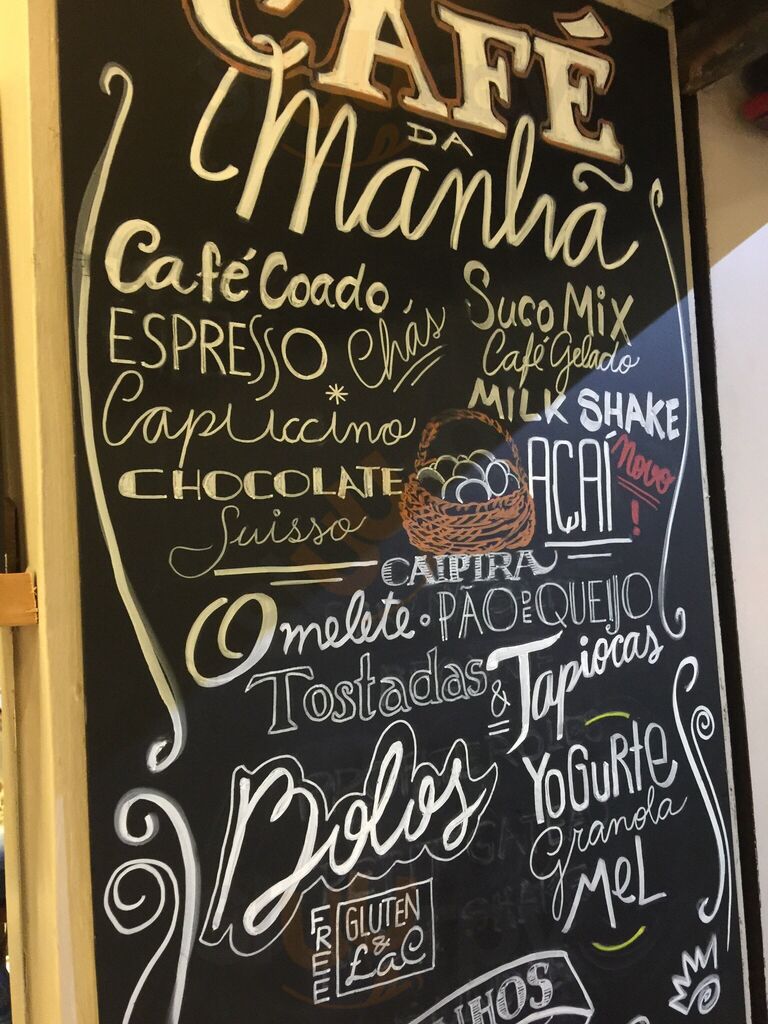 CAFÉ
DA
Manhã
Café Coado
ESPRESSO Chás
Capuccino*
CHOCOLATE
Suisso
Suco MIX
Café Gelado
MILK SHAKE
AÇAÍ Novo!
CAIPIRA
Omelete · PÃO DE QUEIJO
Tostadas & Tapiocas
Bolos
FREE GLUTEN
& LaC
YOGuRte
Granola
MeL